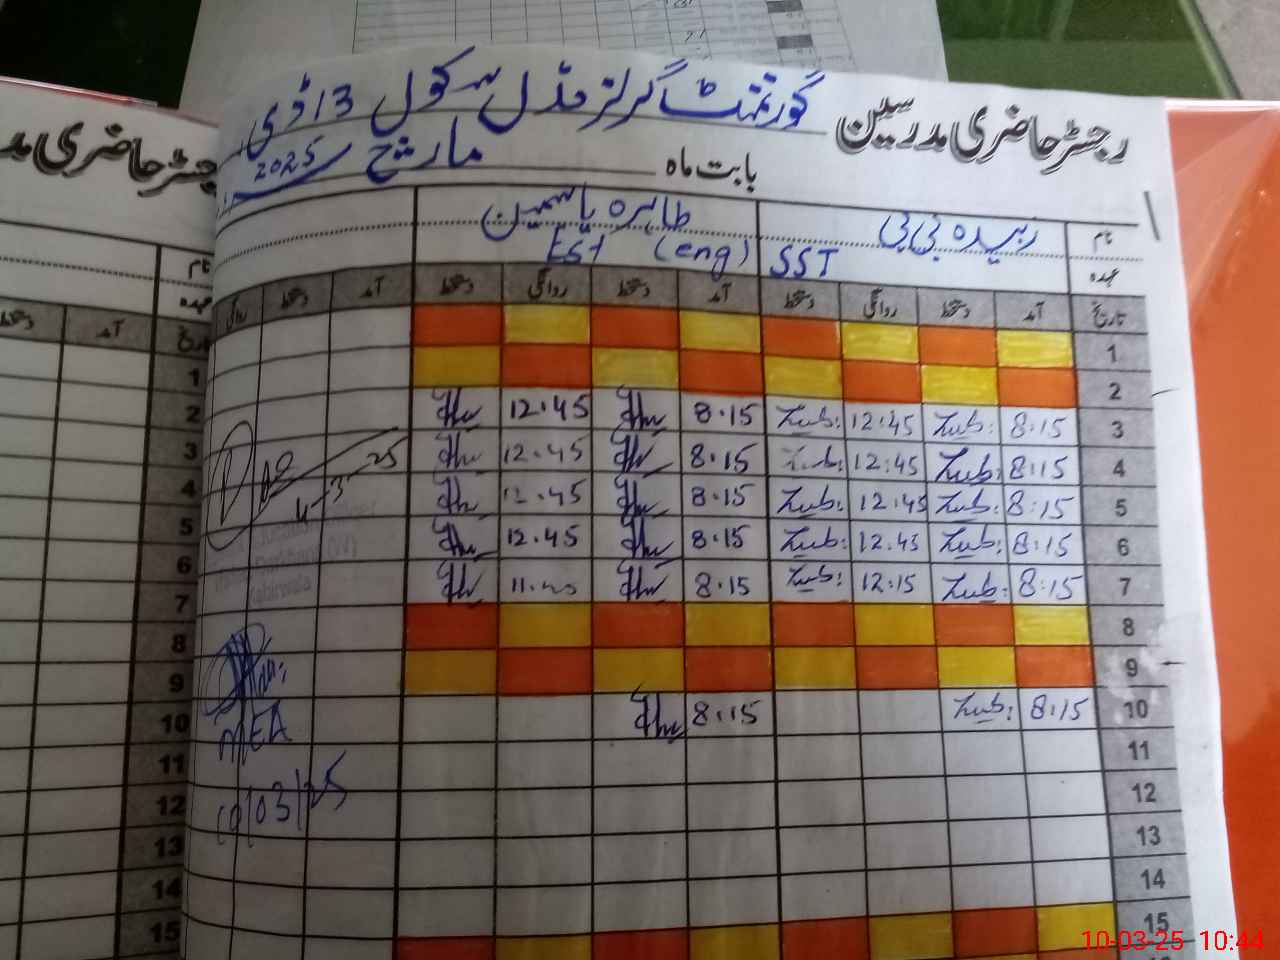 رجسٹر حاضری مدرسین گورنمنٹ گرلز مڈل سکول 13 ڈی
بابت ماہ مارچ 2025
نام زبیدہ بی بی طاہرہ یاسمین
عہدہ SST EST (eng)
تاریخ آمد دستخط روانگی دستخط آمد دستخط روانگی دستخط آمد دستخط روانگی
1
2
3 8:15 Zub: 12:45 Zub: 8.15 12.45
4 8:15 Zub: 12:45 Zub: 8.15 12.45
5 8:15 Zub: 12:45 Zub: 8.15 12.45
6 8:15 Zub: 12:45 Zub: 8.15 12.45
7 8:15 Zub: 12:15 Zub: 8.15
8
9
10 8:15 Zub: 8.15
11
12
13
14
15
MEA
10/03/25
رجسٹر حاضری
نام
عہدہ
تاریخ آمد دستخط
1
2
3
4
5
6
7
8
9
10
11
12
13
14
15
10-03-25 10:44